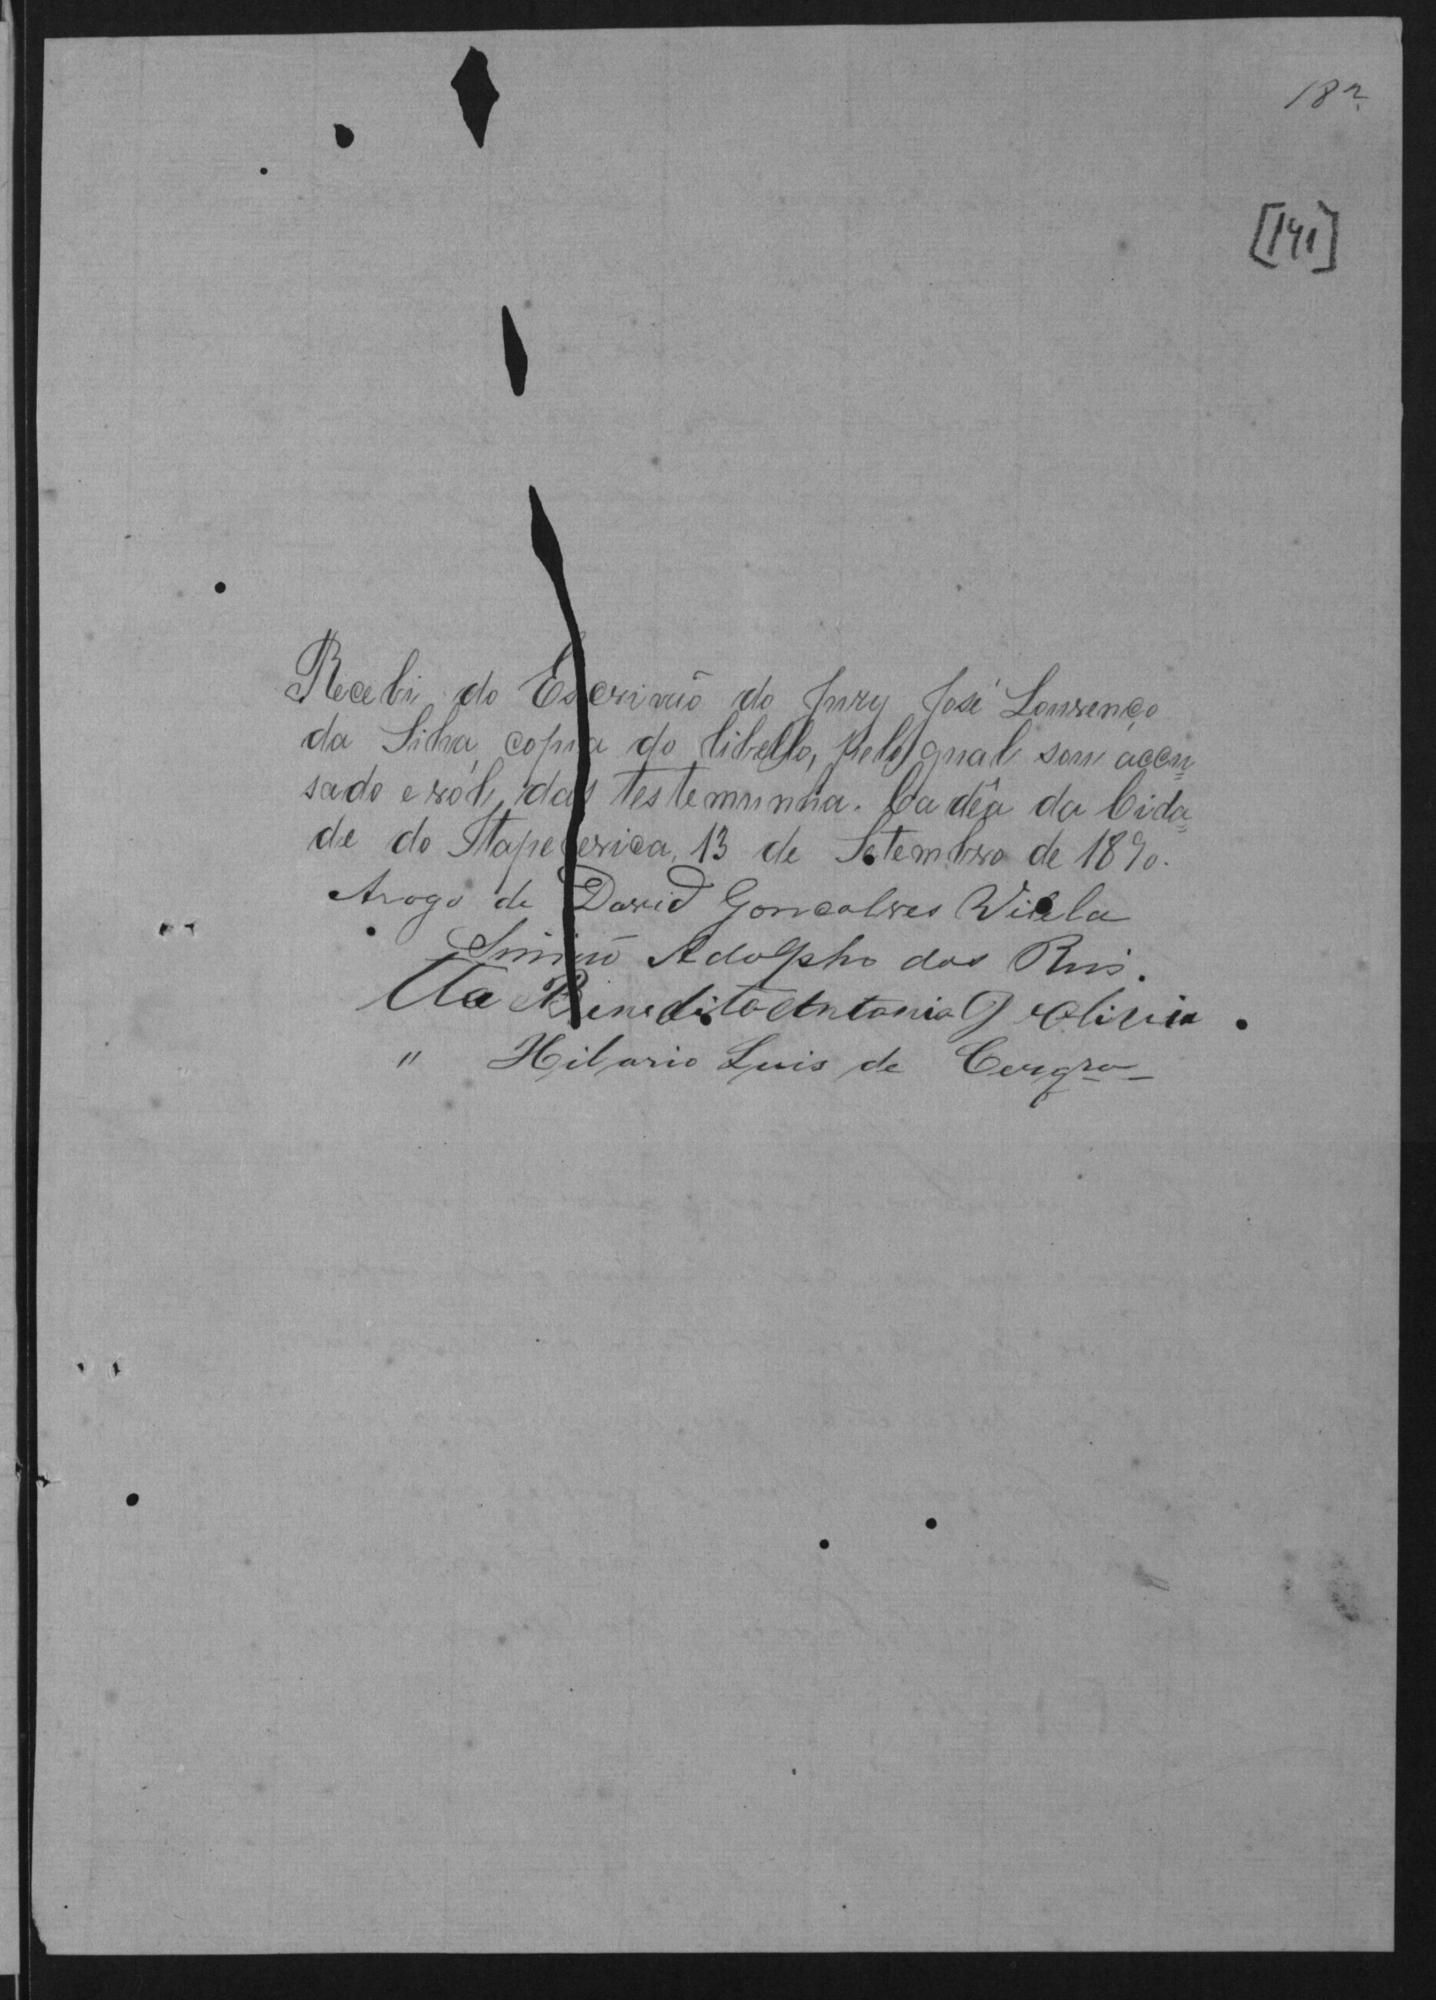 182
[141]
Recebi do Escrivão do Jury José Lourenço
da Silva, copia do libello, pelo qual sou accu=
sado e ról das testemunha. Cadêa da Cida=
de do Itapecerica, 13 de Setembro de 1890.
Arogo de David Goncalves Vilela
Adolpho dos Reis.
Tta Benedito Antonio d Olivia
" Hilario Luis de Cerqra